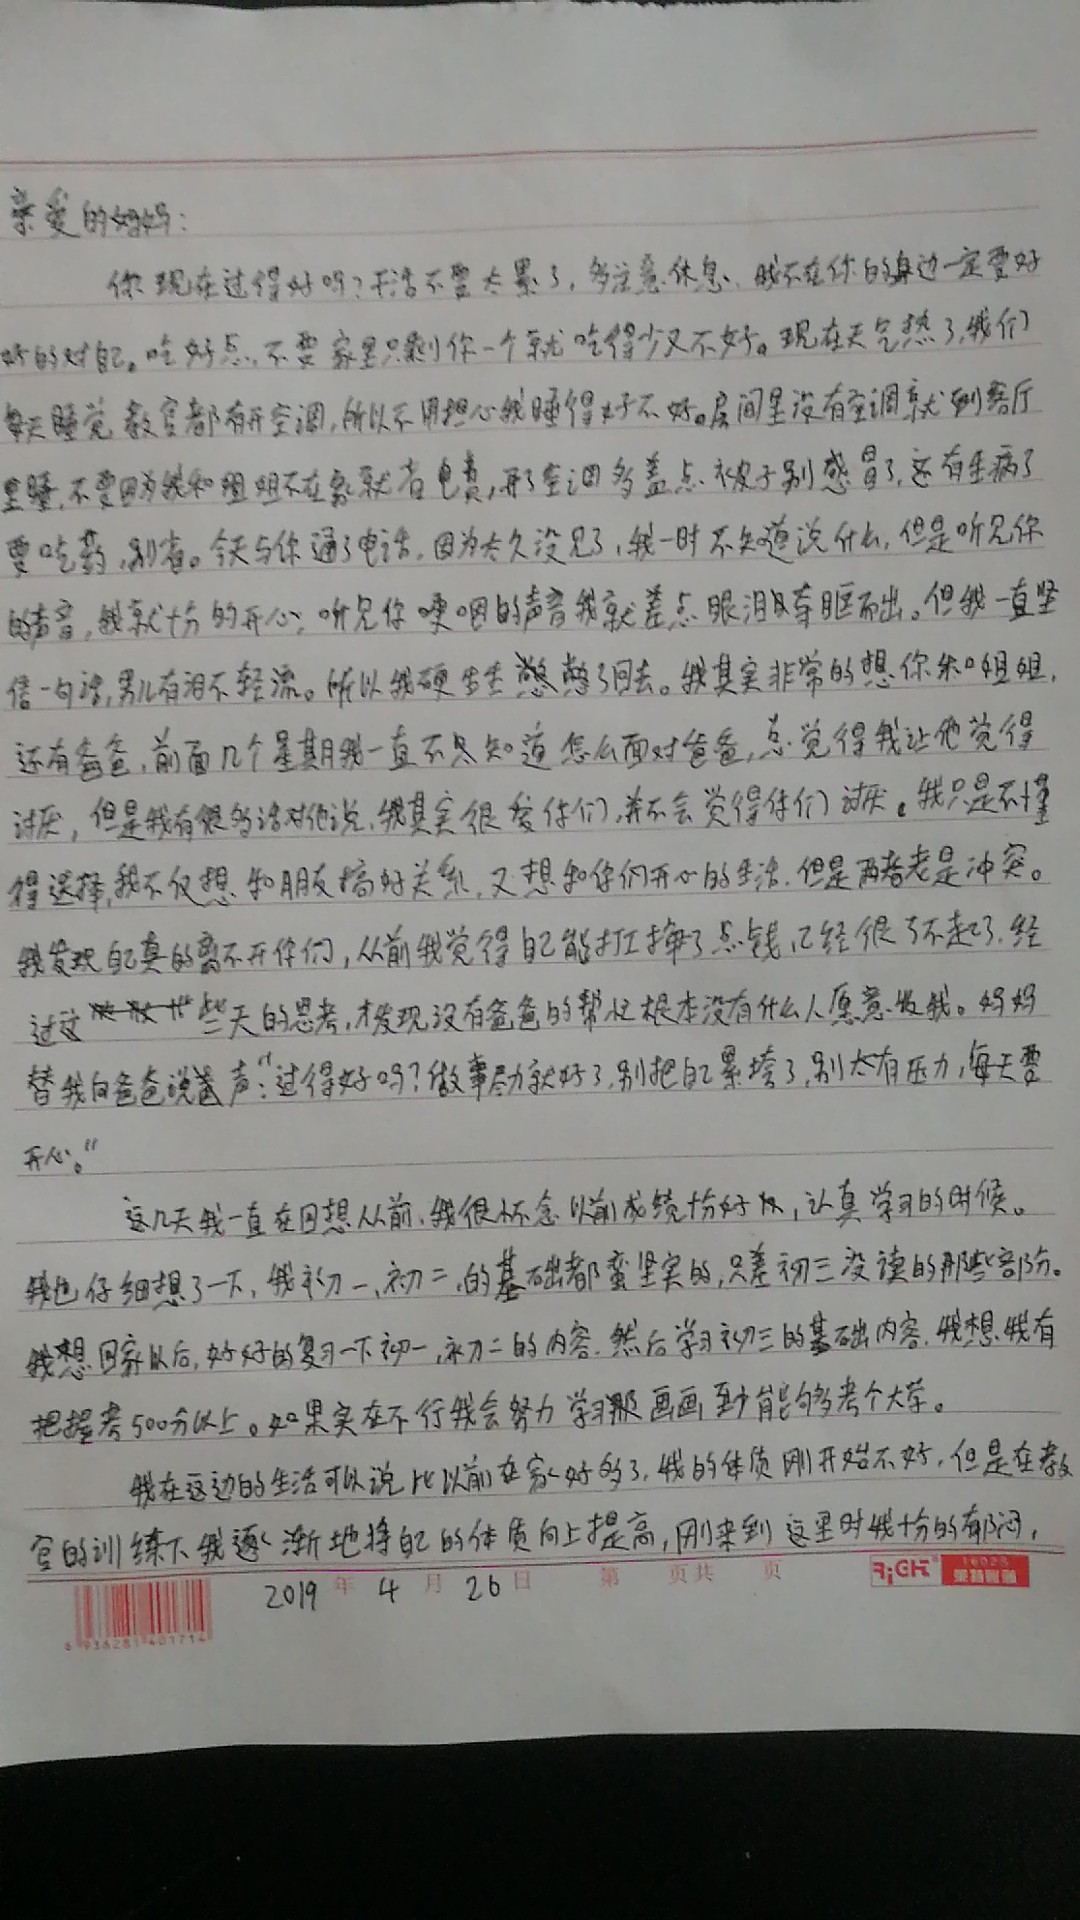 亲爱的妈妈：
你现在过得好吗？干活不要太累了，多注意休息，我不在你的身边一定要好
好的对自己。吃好点，不要家里只剩你一个就吃得少又不好。现在天气热了，我们
每天睡觉教官都有开空调，所以不用担心我睡得好不好。房间里没有空调就到客厅
里睡，不要因为我和姐姐不在家就省电费，开了空调多盖点被子别感冒了，还有生病了
要吃药，别省。今天与你通了电话，因为太久没见了，我一时不知道说什么，但是听见你
的声音，我就十分的开心，听见你哽咽的声音我就差点眼泪夺眶而出。但我一直坚
信一句话，男儿有泪不轻流。所以我硬生生憋了回去。我其实非常的想你和姐姐，
还有爸爸，前面几个星期我一直不知道怎么面对爸爸，总觉得我让他觉得
讨厌，但是我有很多话对他说，我其实很爱你们，并不会觉得你们讨厌。我只是不懂
得选择，我不仅想和朋友搞好关系，又想和你们开心的生活，但是两者老是冲突。
我发现自己真的离不开你们，从前我觉得自己能打工挣了点钱，已经很了不起了，经
过这些天的思考，才发现没有爸爸的帮忙根本没有什么人愿意收我。妈妈
替我向爸爸说声：“过得好吗？做事尽力就好了，别把自己累垮了，别太有压力，每天要
开心。”
这几天我一直在回想从前，我很怀念以前成绩十分好，认真学习的时候。
我也仔细想了一下，我初一，初二，的基础都蛮坚实的，只差初三没读的那些部分。
我想回家以后，好好的复习一下初一，初二的内容，然后学习初三的基础内容，我想，我有
把握考500分以上。如果实在不行我会努力学习那画画至少能够考个大学。
我在这边的生活可以说比以前在家好多了，我的体质刚开始不好，但是在教
官的训练下我逐渐地将自己的体质向上提高，刚来到这里时我十分的郁闷，
2019年4月26日 第 页共 页
RiGHT 16025 莱特
6 936281 401714